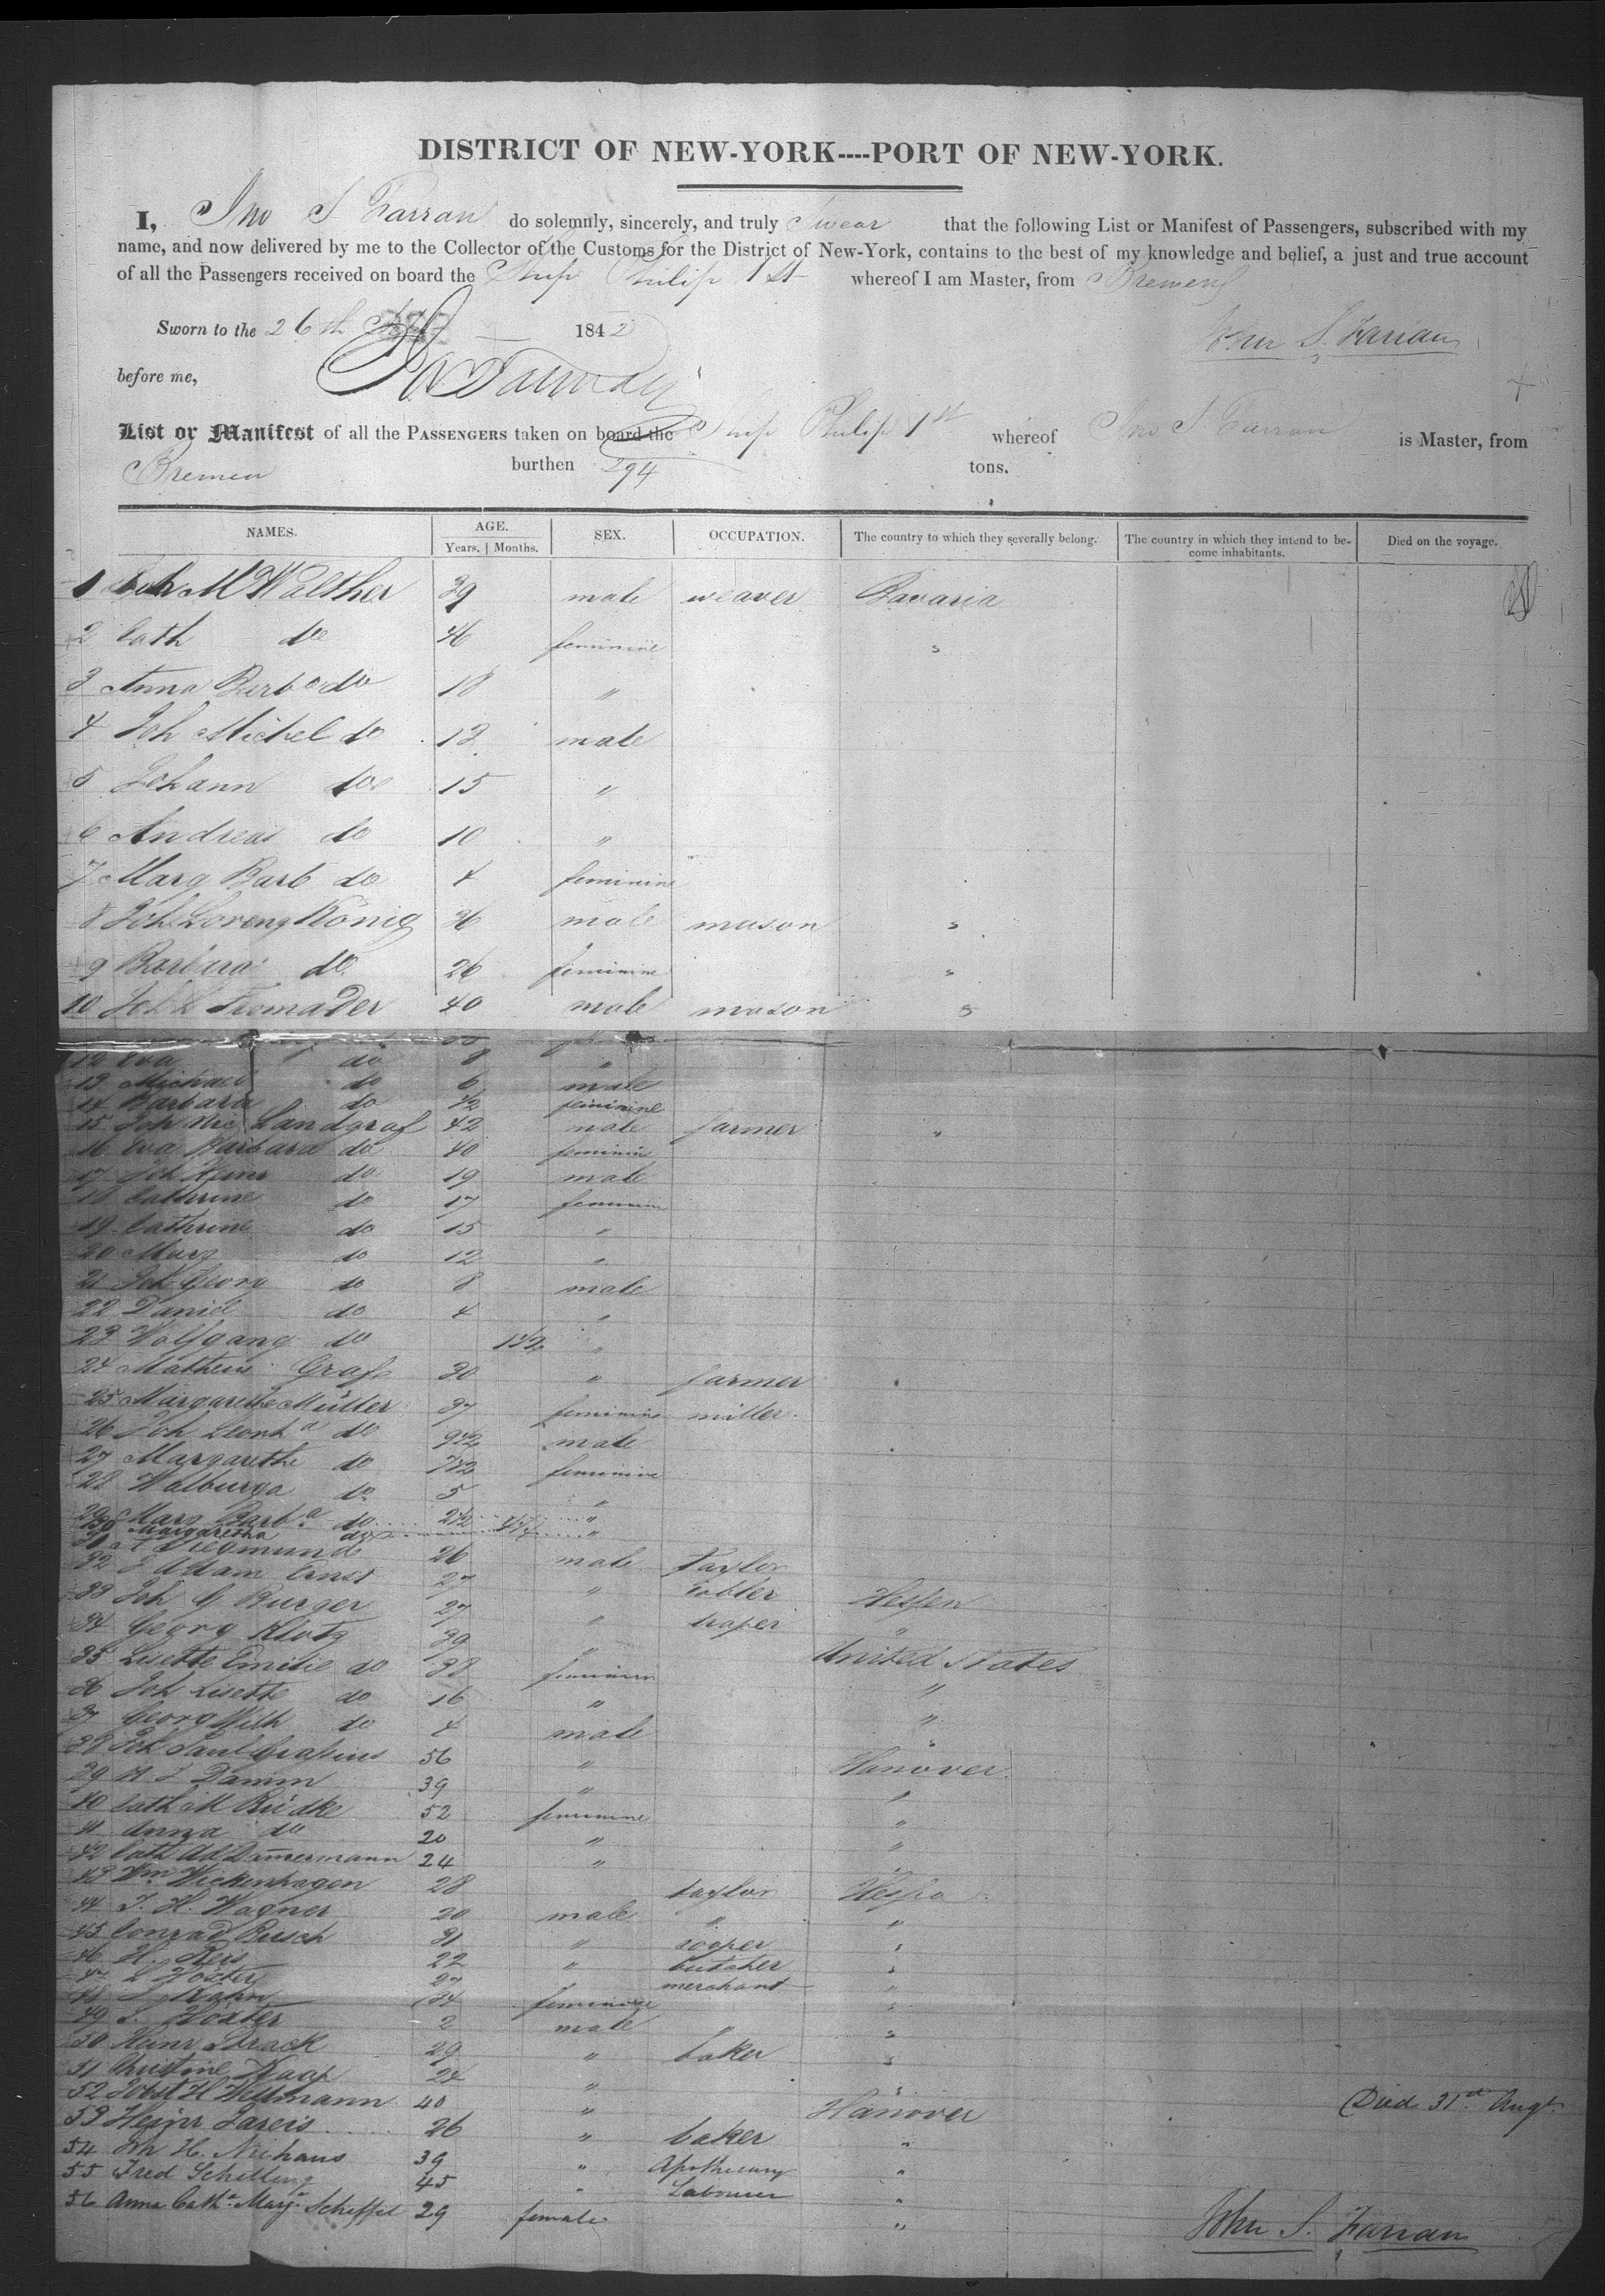 DISTRICT OF NEW-YORK----PORT OF NEW-YORK.
I, Jno S Farran do solemnly, sincerely, and truly Swear that the following List or Manifest of Passengers, subscribed with my
name, and now delivered by me to the Collector of the Customs for the District of New-York, contains to the best of my knowledge and belief, a just and true account
of all the Passengers received on board the Ship Philip 1st whereof I am Master, from Bremen
Sworn to the 26th 1842
John S. Farran
before me,
List or Manifest of all the PASSENGERS taken on board the Ship Philip 1st whereof Jno S. Farran is Master, from
Bremen burthen 294 tons.
NAMES. AGE. SEX. OCCUPATION. The country to which they severally belong. The country in which they intend to become inhabitants. Died on the voyage.
Years. Months.
1 Joh M Walther 39 male weaver Bavaria
2 Cath do 46 feminine "
3 Anna Barba do 18 "
4 Joh Michel do 12 male
5 Johann do 15 "
6 Andreas do 10 "
7 Marg Barb do 4 feminine
8 Joh Lorenz König 36 male mason "
9 Barbara do 26 feminine "
10 Joh L Tromader 40 male mason "
12 Eva do 8 "
13 Michael do 6 male
14 Barbara do 1/2 feminine
15 Joh Nic Landgraf 42 male farmer "
16 Eva Barbara do 40 feminine
17 Joh do 19 male
18 Cathrine do 17 feminin
19 Cathrine do 15 "
20 Marg do 12 "
21 Joh Georg do 8 male
22 Daniel do 4 "
23 Wolfgang do 1 1/2 "
24 Matheus Graf 30 " farmer
25 Margarethe Müller 37 feminine miller
26 Joh Leonhd do 9 1/2 male
27 Margarethe do 7 1/2 feminine
28 Walburga do 5 "
29 Marg Barba do 2 1/2 "
30 Margaretha do "
31 Siegmund 26 male Taylor
32 J Adam Ernst 27 " Cobler
33 Joh G Burger 27 " draper Hessen
34 Georg Klotz 39 " "
35 Lisette Emilie do 38 feminin United States
36 Joh Lisette do 16 " "
37 Georg Wilh do 4 male "
38 Joh Paul 56 " Hanover
39 H J Damm 39 " "
40 Cath M Rüdke 52 feminine "
41 Anna do 20 " "
42 Cath Ad Damermann 24 " "
43 Wm Wickenhagen 28 taylor
44 J. H. Wagner 20 male " "
45 Conrad Busch 31 " cooper "
46 H. Reis 22 " butcher "
47 L Hoxter 27 " merchant "
48 S. Kahn 24 feminine "
49 S. Hoxter 2 male "
50 Heinr Strack 29 " baker "
51 Christine 24 " "
52 Jobst H Wellmann 40 " Hanover Died 31st Augt
53 Heinr Jareis 26 " baker "
54 H. Niehaus 39 " Apothecary "
55 Fred Schelling 45 " Labourer "
56 Anna Catha Marga Scheffel 29 female "
John S. Farran